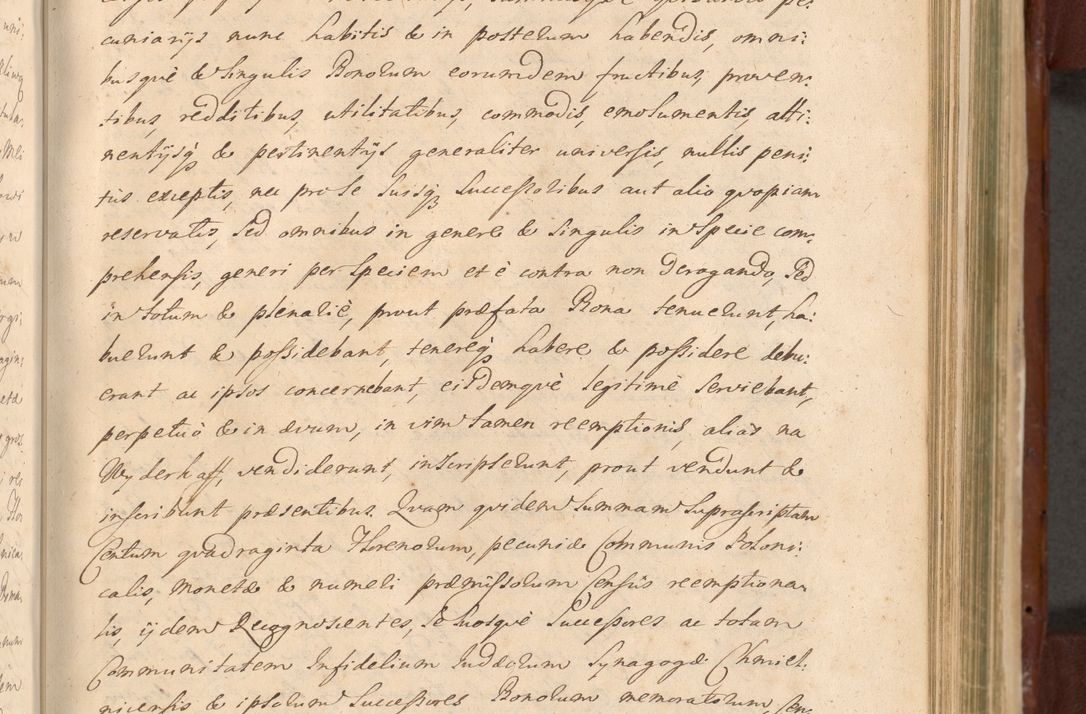 cuniarijs nunc habitis & in posterum habendis, omni:
busquè & Singulis Bonorum eorumdem fructibus, proven:
tibus, redditibus, utilitatibus, commodis, emolumentis, atti:
nentijsq3 & pertinentijs generaliter universis, nullis peni:
tus exceptis, nec pro se Suisq3 Successoribus aut alio quopiam
reservatis, Sed omnibus in genere & Singulis in Specie com:
prehensis, generi per Speciem et è contra non Derogando, Sed
in totum & plenariè, prout præfata Bona tenuerunt, ha:
buerunt & possidebant, tenereq3 habere & possidere debu:
erant ac ipsos concernebant, eisdemquè legitimè Serviebant,
perpetuò & in ævum, in vim tamen reemptionis, aliàs na
Wyderkaff, vendiderunt, inscripserunt, prout vendunt &
inscribunt præsentibus. Quam quidem Summam Suprascriptam
Centum quadraginta Florenorum, pecuniæ Communis Poloni:
calis, monetæ & numeri præmissorum Censûs reemptiona:
lis, ijdem Recognoscentes, Se Suosquè Successores ac totam
Communitatem Infidelium Judæorum Synagogæ Chmiel:
nicensis & ipsorum Successores Bonorum memoratorum, Cen: